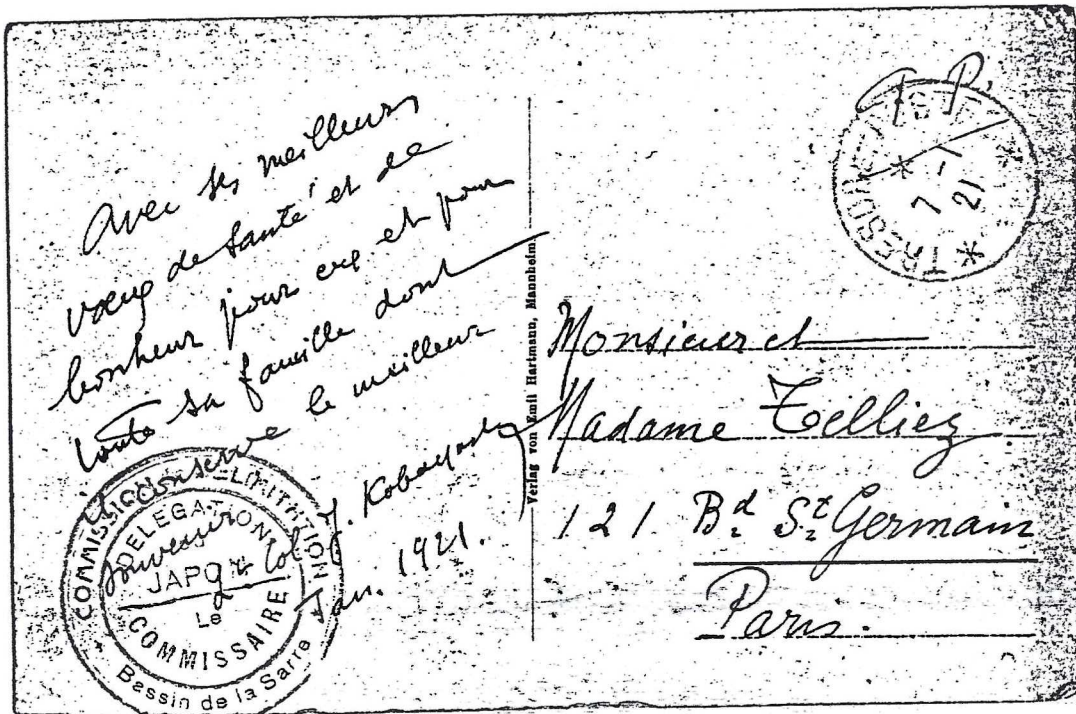 Avec ses meilleurs
vœux de santé et de
bonheur pour eux et pour
toute sa famille dont
il conserve le meilleur
souvenir
Lt Col J. Kobayashi
Jan. 1921.
COMMISSION LIMITATION
DELEGATION
JAPON
Le
COMMISSAIRE
Bassin de la Sarre
Verlag von Emil Hartmann, Mannheim.
T. P.
TRESOR ET POSTES
7-1
21
Monsieur et
Madame Telliez
121 Bd St Germain
Paris.